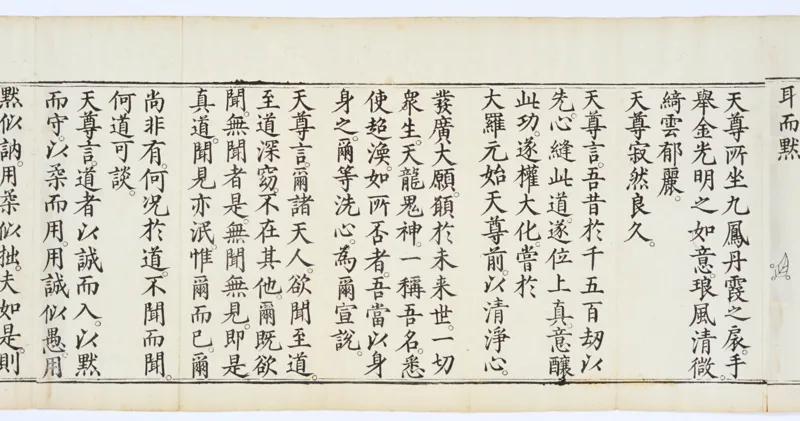 耳而默
天尊所坐九鳳丹霞之扆。手
舉金光明之如意。琅風清微。
綺雲郁麗。
天尊寂然良久。
天尊言。吾昔於千五百劫以
先。心縫此道。遂位上真。意釀
此功。遂權大化。嘗於
大羅元始天尊前。以清淨心。
發廣大願。願於未来世。一切
衆生。天龍鬼神。一稱吾名。悉
使超渙。如所否者。吾當以身
身之。爾等洗心。為爾宣說。
天尊言。爾諸天人。欲聞至道。
至道深窈。不在其他。爾既欲
聞。無聞者是。無聞無見。即是
真道。聞見亦泯。惟爾而已。爾
尚非有。何况於道。不聞而聞。
何道可談。
天尊言。道者以誠而入。以默
而守。以柔而用。用誠似愚。用
默似訥。用柔似拙。夫如是。則